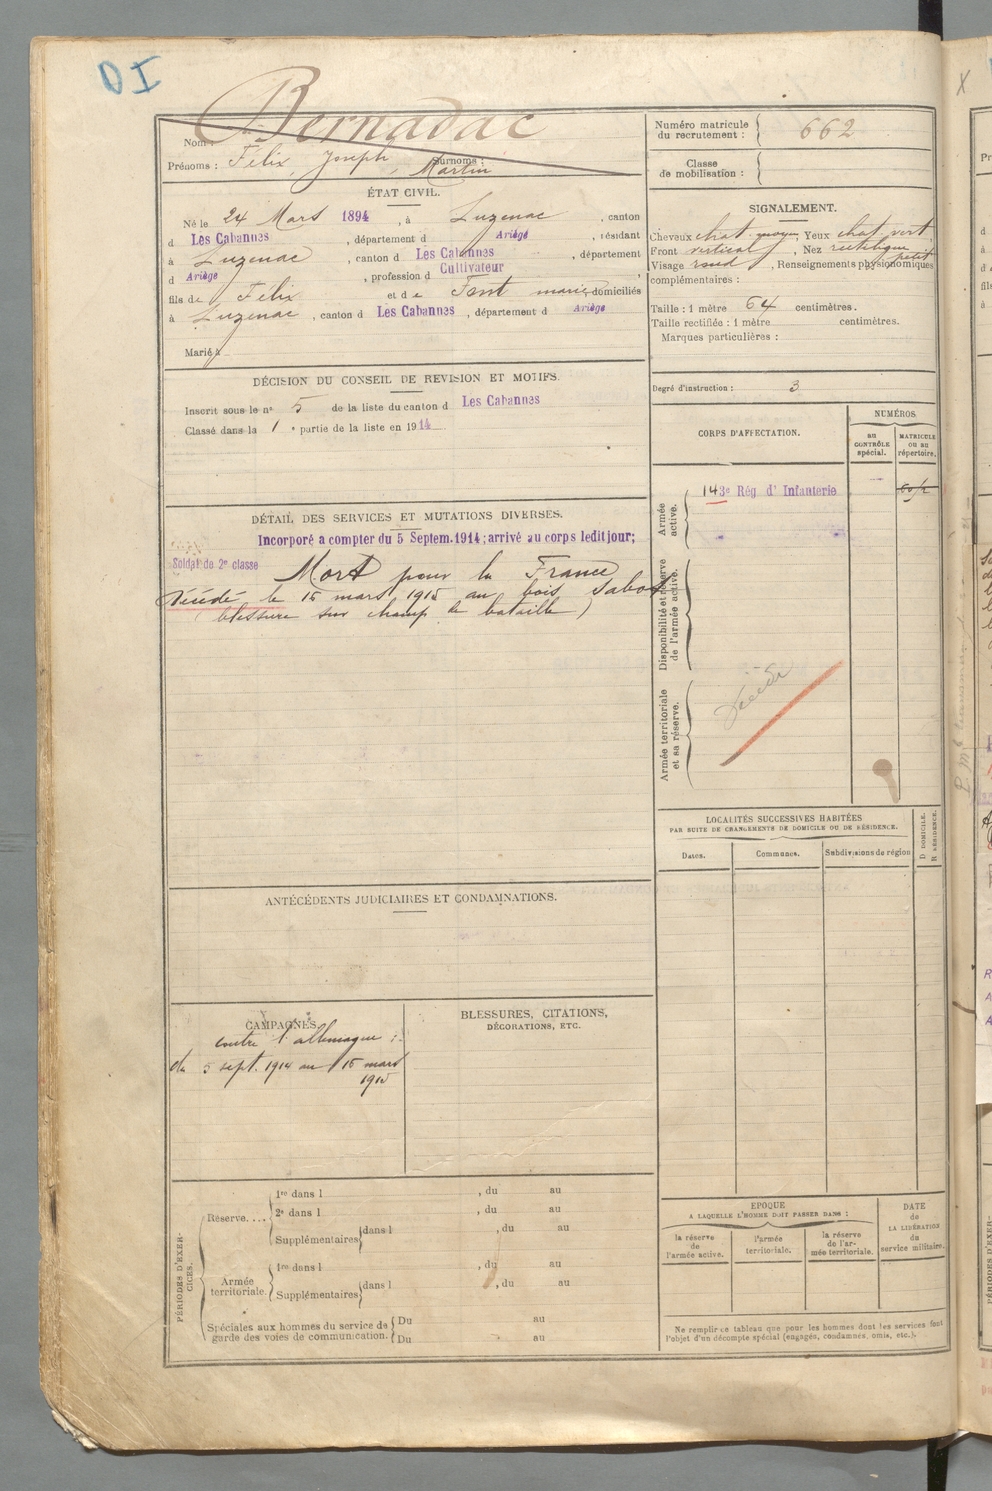 DI
Bernadac
Nom :
Prénoms : Félix, Joseph, Martin
Surnoms :
Numéro matricule du recrutement : 662
Classe de mobilisation :
ÉTAT CIVIL.
Né le 24 Mars 1894, à Luzenac, canton
d Les Cabannes, département d Ariège, résidant
à Luzenac, canton d Les Cabannes, département
d Ariège, profession d Cultivateur
fils de Félix et de Font marie domiciliés
à Luzenac, canton d Les Cabannes, département d Ariège
Marié à
SIGNALEMENT.
Cheveux chat. moyen, Yeux chat. vert,
Front vertical, Nez rectiligne petit
Visage rond, Renseignements physionomiques
complémentaires :
Taille : 1 mètre 64 centimètres.
Taille rectifiée : 1 mètre centimètres.
Marques particulières :
Degré d'instruction : 3
DÉCISION DU CONSEIL DE REVISION ET MOTIFS.
Inscrit sous le nº 5 de la liste du canton d Les Cabannes
Classé dans la 1 e partie de la liste en 1914
CORPS D'AFFECTATION.
NUMÉROS
au CONTRÔLE spécial.
MATRICULE ou au répertoire.
Armée active.
143e Rég d' Infanterie
Disponibilité et réserve de l'armée active.
Armée territoriale et sa réserve.
décédé
DÉTAIL DES SERVICES ET MUTATIONS DIVERSES.
Incorporé a compter du 5 Septem. 1914; arrivé au corps ledit jour;
Soldat de 2e classe
Mort pour la France
Décédé le 15 mars 1915 au bois Sabot
(blessure sur champ de bataille)
LOCALITÉS SUCCESSIVES HABITÉES
PAR SUITE DE CHANGEMENTS DE DOMICILE OU DE RÉSIDENCE.
Dates.
Communes.
Subdivisions de région
D DOMICILE.
R RÉSIDENCE.
ANTÉCÉDENTS JUDICIAIRES ET CONDAMNATIONS.
CAMPAGNES.
contre l'allemagne :
du 5 sept. 1914 au 15 mars
1915
BLESSURES, CITATIONS,
DÉCORATIONS, ETC.
PÉRIODES D'EXERCICES.
Réserve....
1re dans l , du au
2e dans l , du au
Supplémentaires dans l , du au
Armée territoriale.
1re dans l , du au
Supplémentaires dans l , du au
Spéciales aux hommes du service de
garde des voies de communication.
Du au
Du au
EPOQUE
A LAQUELLE L'HOMME DOIT PASSER DANS :
la réserve de l'armée active.
l'armée territoriale.
la réserve de l'armée territoriale.
DATE de LA LIBÉRATION du service militaire.
Ne remplir ce tableau que pour les hommes dont les services font
l'objet d'un décompte spécial (engagés, condamnés, omis, etc.).